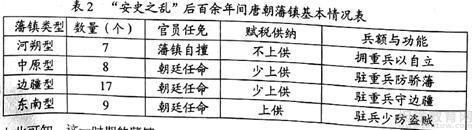 表2 “安史之乱”后百余年间唐朝藩镇基本情况表
藩镇类型 数量（个） 官员任免 赋税供纳 兵额与功能
河朔型 7 藩镇自擅 不上供 拥重兵以自立
中原型 8 朝廷任命 少上供 驻重兵防骄藩
边疆型 17 朝廷任命 少上供 驻重兵守边疆
东南型 9 朝廷任命 上供 驻兵少防盗贼